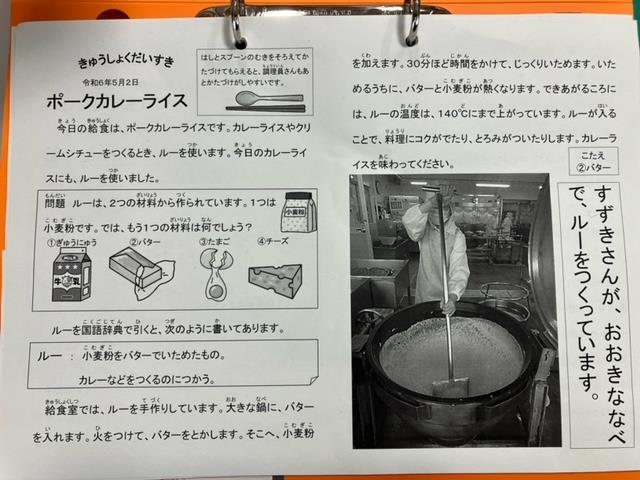 きゅうしょくだいすき
令和6年5月2日
ポークカレーライス
はしとスプーンのむきをそろえてか
たづけてもらえると、調理員さんもあ
とかたづけがしやすいです。
今日の給食は、ポークカレーライスです。カレーライスやクリ
ームシチューをつくるとき、ルーを使います。今日のカレーラ
イスにも、ルーを使いました。
問題 ルーは、2つの材料から作られています。1つは
小麦粉です。では、もう1つの材料は何でしょう?
小麦粉
①ぎゅうにゅう ②バター ③たまご ④チーズ
牛乳
ルーを国語辞典で引くと、次のように書いてあります。
ルー : 小麦粉をバターでいためたもの。
カレーなどをつくるのにつかう。
給食室では、ルーを手作りしています。大きな鍋に、バター
を入れます。火をつけて、バターをとかします。そこへ、小麦粉
を加えます。30分ほど時間をかけて、じっくりいためます。いた
めるうちに、バターと小麦粉が熱くなります。できあがるころに
は、ルーの温度は、140℃にまで上がっています。ルーが入る
ことで、料理にコクがでたり、とろみがついたりします。カレーラ
イスを味わってください。
こたえ
②バター
すずきさんが、おおきななべ
で、ルーをつくっています。